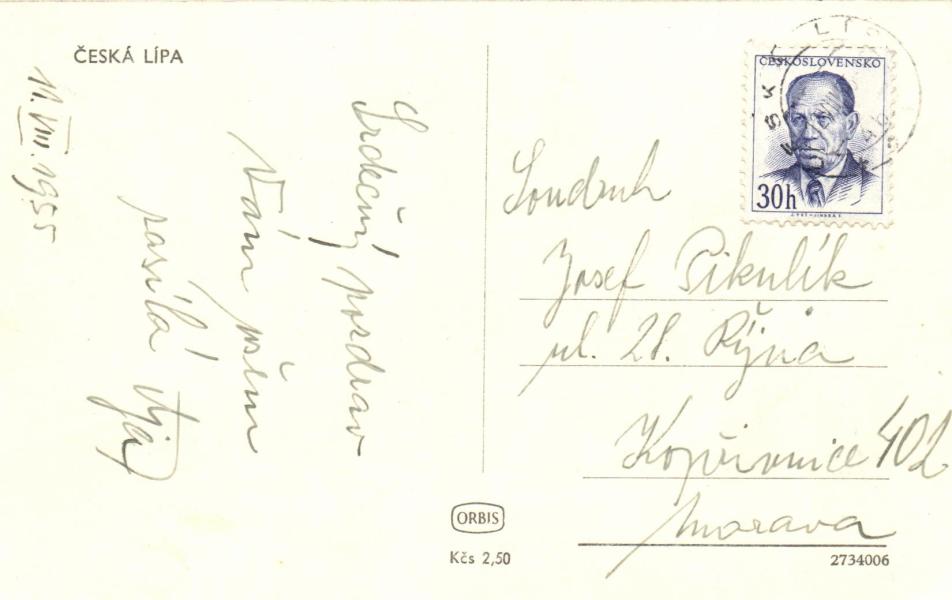 ČESKÁ LÍPA
11. VIII. 1955
Srdečný pozdrav
Vám všem
posílá
ČESKOSLOVENSKO
30h
Soudruh
Josef Pikulík
ul. 28. Října
Kopřivnice 402
Morava
ORBIS
Kčs 2,50
2734006